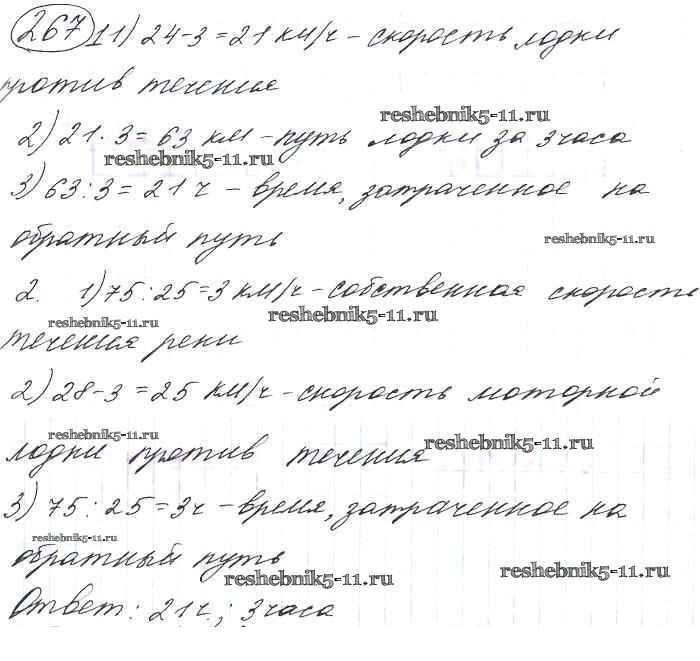 267 1 1) 24-3=21 км/ч - скорость лодки
против течения
reshebnik5-11.ru
2) 21·3=63 км - путь лодки за 3 часа
reshebnik5-11.ru
3) 63:3=21 ч - время, затраченное на
обратный путь
reshebnik5-11.ru
2. 1) 75:25=3 км/ч - собственная скорость
reshebnik5-11.ru reshebnik5-11.ru
течения реки
2) 28-3=25 км/ч - скорость моторной
reshebnik5-11.ru reshebnik5-11.ru
лодки против течения
3) 75:25=3ч - время, затраченное на
reshebnik5-11.ru
обратный путь
reshebnik5-11.ru reshebnik5-11.ru
Ответ: 21ч.; 3 часа